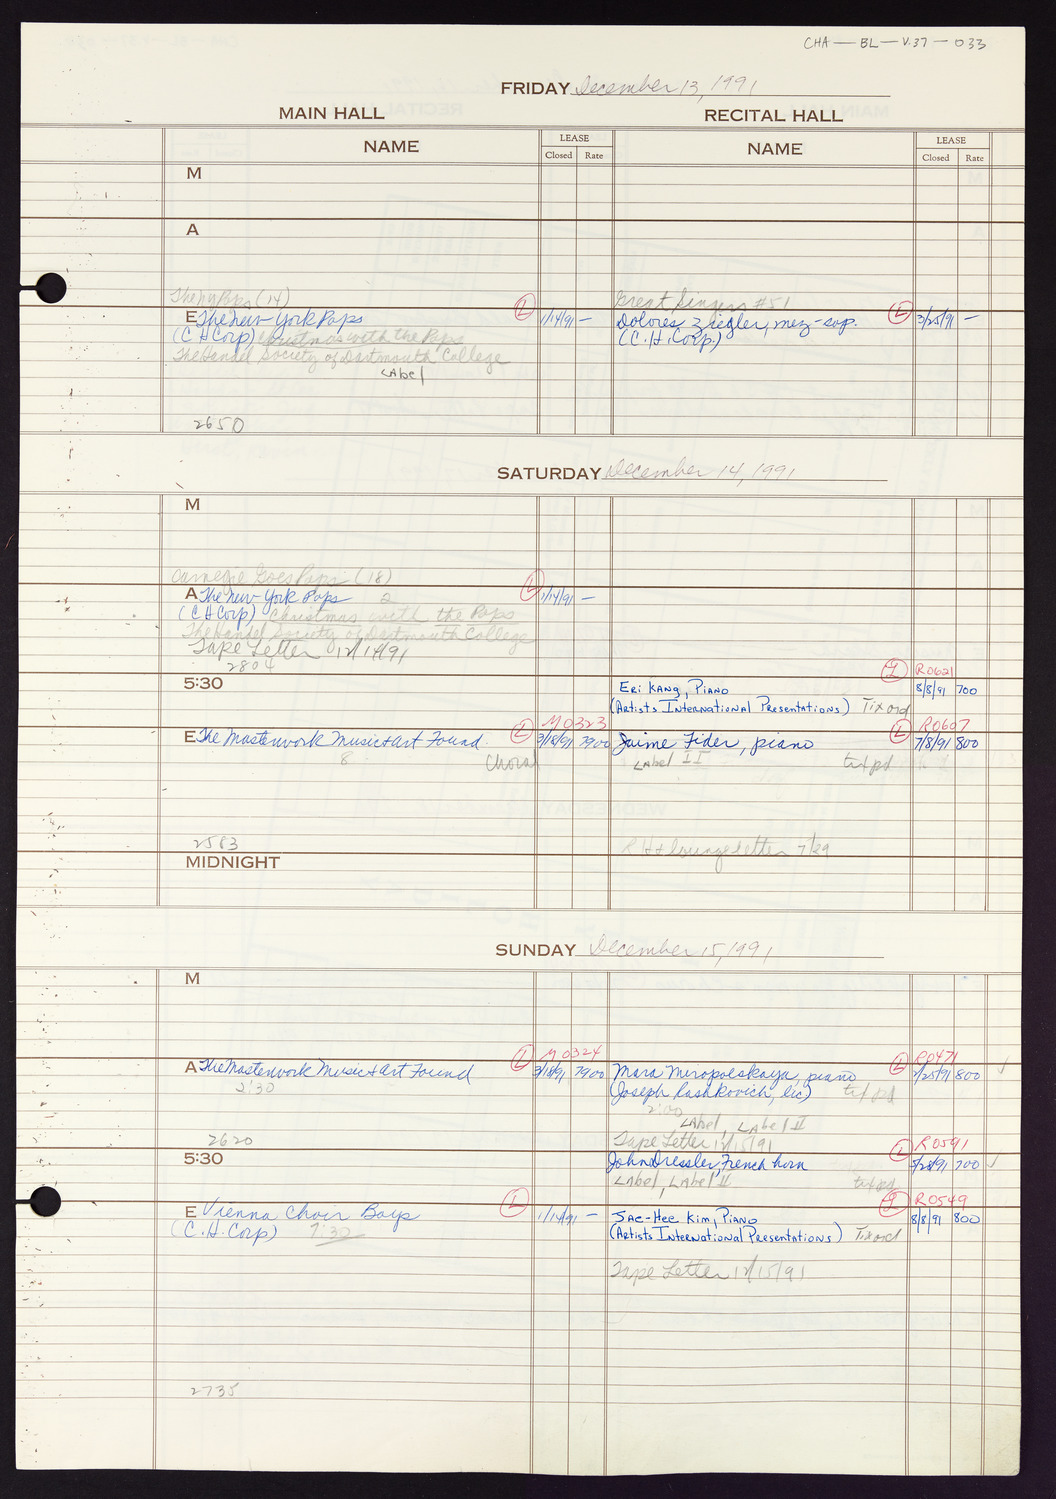 CHA — BL — V.37 — 033
FRIDAY December 13, 1991
MAIN HALL
RECITAL HALL
NAME
LEASE
Closed Rate
NAME
LEASE
Closed Rate
M
A
The NY Pops (14)
Great Singers #51
E The New York Pops
L 1/14/91 —
Dolores Ziegler, mez-sop.
L 3/25/91 —
(C H Corp) Christmas with the Pops
(C.H. Corp.)
The Handel Society of Dartmouth College
Label
2650
SATURDAY December 14, 1991
M
Carnegie Goes Pops (18)
A The New York Pops 2
L 1/14/91 —
(C H Corp) Christmas with the Pops
The Handel Society of Dartmouth College
Tape Letter 12/14/91
2804
5:30
L R0621
Eri Kang, Piano
8/8/91 700
(Artists International Presentations) Tix ord
M0323
R0607
E The Masterwork Music & Art Found.
L 3/18/91 7900
Jaime Fider, piano
L 7/8/91 800
8
Choral
Label II
txt pd
2583
RH Lounge Letter 7/29
MIDNIGHT
SUNDAY December 15, 1991
M
M0324
R0471
A The Masterwork Music & Art Found
L 3/18/91 7900
Mara Miropolskaya, piano
L /25/91 800
2:30
(Joseph Rashkovich, lic) txt pd
2:00
Label, Label II
2620
Tape Letter 12/15/91
5:30
L R0591
John Dressler, French horn
5/28/91 700
Label, Label II
txt pd
L R0549
E Vienna Choir Boys
L 1/14/91 —
Jae-Hee Kim, Piano
8/8/91 800
(C.H. Corp) 7:30
(Artists International Presentations) Tix ord
Tape Letter 12/15/91
2735